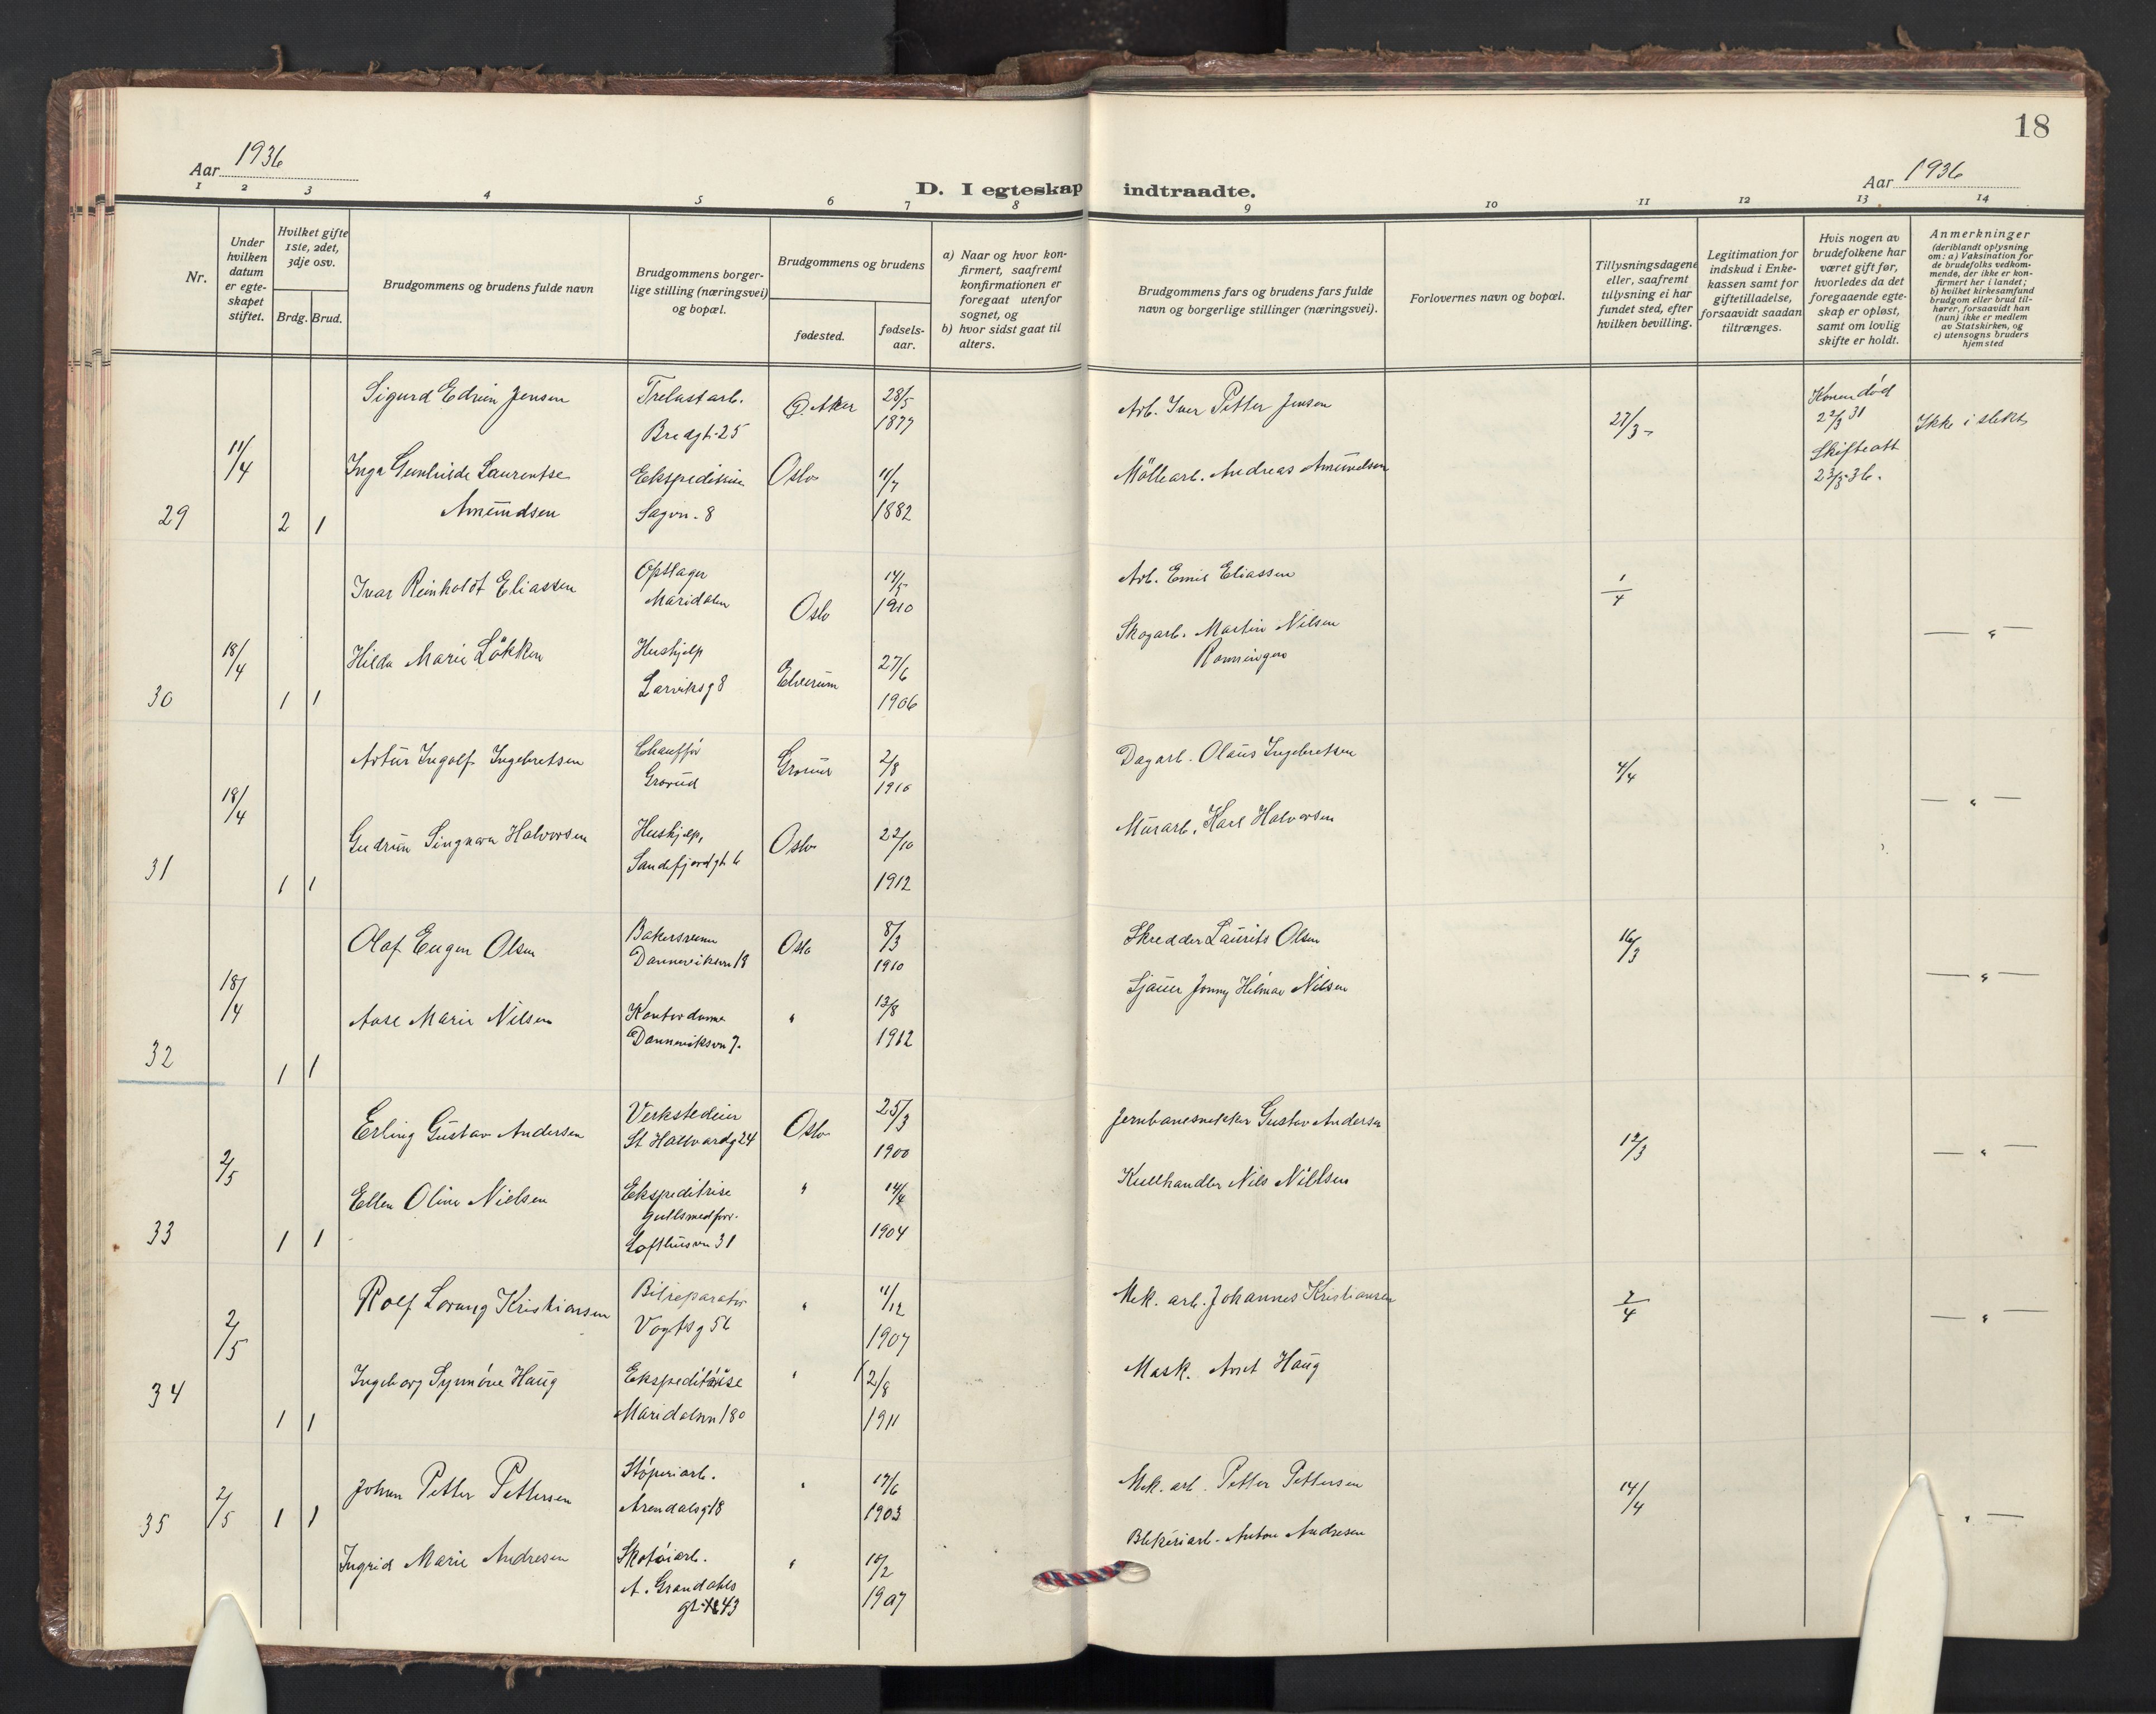 18
Aar 1936
D. I egteskap indtraadte.
Aar 1936
1 2 3 4 5 6 7 8 9 10 11 12 13 14
Nr.
Under hvilken datum er egteskapet stiftet.
Hvilket gifte 1ste, 2det, 3dje osv.
Brdg. Brud.
Brudgommens og brudens fulde navn
Brudgommens borgerlige stilling (næringsvei) og bopæl.
Brudgommens og brudens
fødested.
fødselsaar.
a) Naar og hvor konfirmert, saafremt konfirmationen er foregaat utenfor sognet, og
b) hvor sidst gaat til alters.
Brudgommens fars og brudens fars fulde navn og borgerlige stillinger (næringsvei).
Forlovernes navn og bopæl.
Tillysningsdagene eller, saafremt tillysning ei har fundet sted, efter hvilken bevilling.
Legitimation for indskud i Enkekassen samt for giftetilladelse, forsaavidt saadan tiltrænges.
Hvis nogen av brudefolkene har været gift før, hvorledes da det foregaaende egteskap er opløst, samt om lovlig skifte er holdt.
Anmerkninger (deriblandt oplysning om: a) Vaksination for de brudefolks vedkommende, der ikke er konfirmert her i landet; b) hvilket kirkesamfund brudgom eller brud tilhører, forsaavidt han (hun) ikke er medlem av Statskirken, og c) utensogns bruders hjemsted
29 11/4 2 1
Sigurd Edvin Jensen Trelastarb. Ø. Aker 28/5 Arb. Iver Petter Jensen 27/3 Konen død
Bredgt. 25 1877 22/3 31 Ikke i slekt
Inga Gunhilde Laurentse Ekspeditrise Oslo 11/7 Møllearb. Andreas Amundsen Skifteatt
Amundsen Sagvn. 8 1882 23/3-36.
30 18/4 1 1
Ivar Reinholdt Eliassen Opsøger 14/5 Arb. Emil Eliassen 1/4
Maridalen Oslo 1910
Hilda Marie Løkken Hushjelp 27/6 Skogarb. Martin Nilsen — " —
Larviksg 8 Elverum 1906 Rønningen
31 18/4 1 1
Artur Ingolf Ingebretsen Chauffør Grorud 2/8 Dagarb. Olaus Ingebretsen 4/4
Grorud 1910
Gudrun Singnora Halvorsen Hushjelp, Oslo 22/10 Murarb. Karl Halvorsen — " —
Sandefjordgt. 6 1912
32 18/4 1 1
Olaf Eugen Olsen Bakersvenn Oslo 8/3 Skredder Laurits Olsen 16/3
Danneviksvn 18 1910
Aase Marie Nilsen Kontordame " 13/8 Sjauer Jonny Hilmar Nilsen — " —
Danneviksvn 7. 1912
33 2/5 1 1
Erling Gustav Andersen Verkstedeier Oslo 25/3 Jernbanesnekker Gustav Andersen 12/3
St. Hallvardg 24 1900
Ellen Oline Nielsen Ekspeditrise " 14/4 Kullhandler Nils Nielsen — " —
gullsmedforr.
Lofthusvn 31 1904
34 2/5 1 1
Rolf Lorang Kristiansen Bilreparatør " 11/12 Mek. arb. Johannes Kristiansen 2/4
Vogtsg 56 1907
Ingeborg Synnöve Haug Ekspeditrise " 12/8 Mask. Arnt Haug — " —
Maridalsvn 180 1911
35 2/5 1 1
Johan Petter Pettersen Støperiarb. " 17/6 Mek. arb. Petter Pettersen 14/4
Arendalsg 18 1903
Ingrid Marie Andresen Skotøiarb. " 10/2 Blikkeriarb. Anton Andresen — " —
A. Grandahls
gt. 43 1907